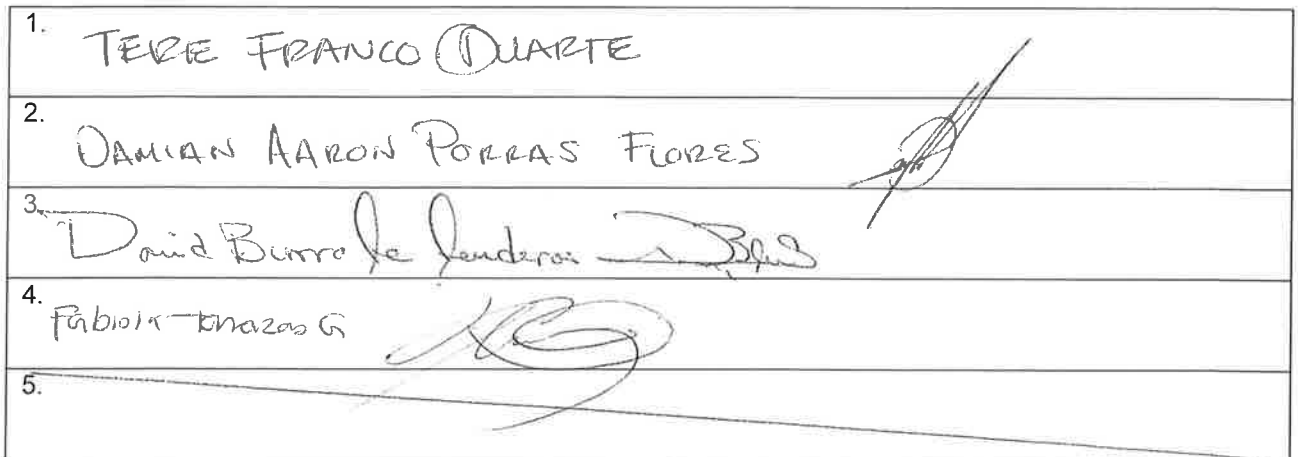 1. TERE FRANCO DUARTE
2. DAMIAN AARON PORRAS FLORES
3. David Burrola Landeros
4. Fabiola G
5.